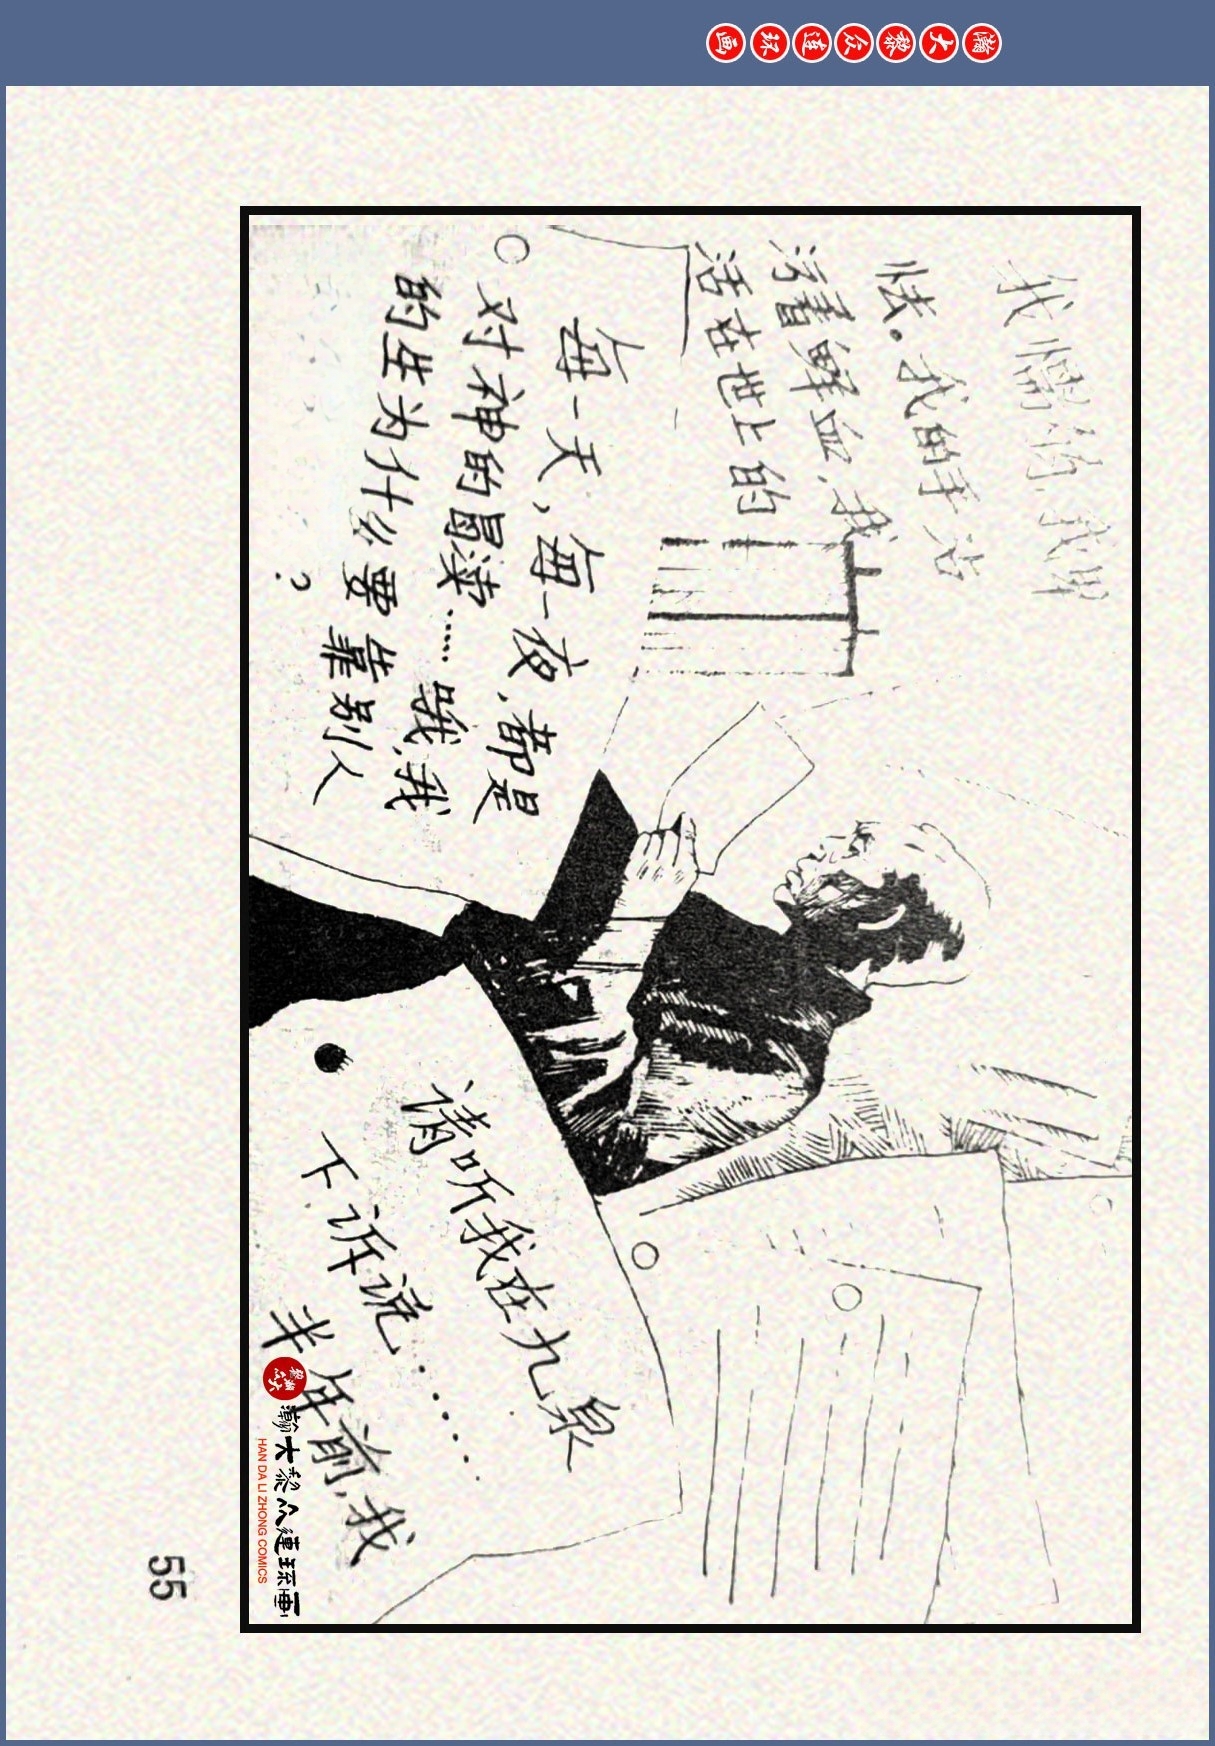 瀚大黎众连环画
我懦弱,我卑
怯。我的手沾
污着鲜血,我
活在世上的
每一天,每一夜,都是
对神的冒渎……哦,我
的生为什么要靠别人
?
请听我在九泉
下诉说……
半年前,我
瀚大黎众連环畫
HAN DA LI ZHONG COMICS
55